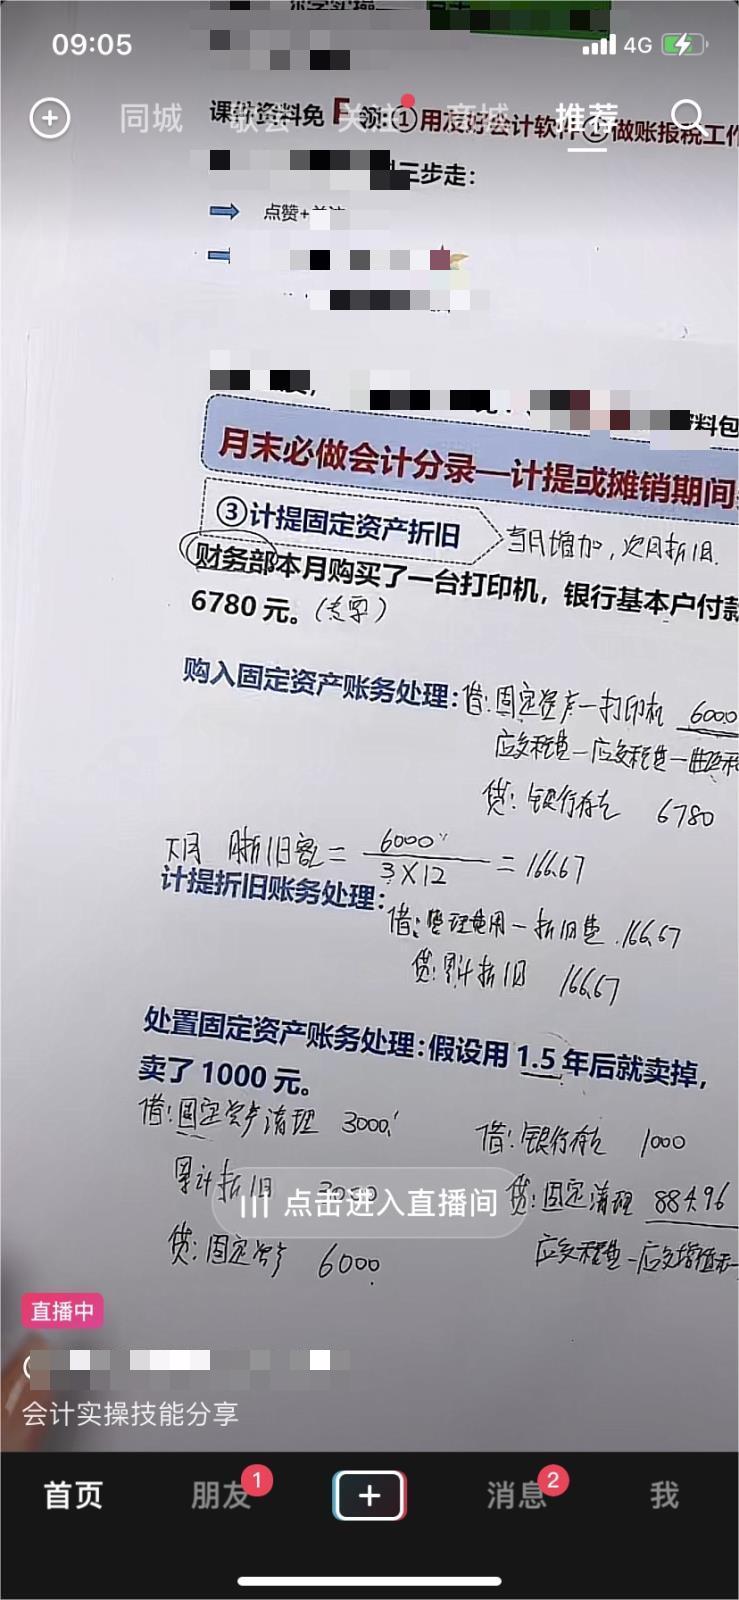 09:05
4G
同城
关注
商城
推荐
课件资料免
领:①用友好会计软件②做账报税工作
三步走：
点赞+关注
料包
月末必做会计分录—计提或摊销期间
③计提固定资产折旧
当月增加，次月折旧.
财务部本月购买了一台打印机，银行基本户付款
6780元。
购入固定资产账务处理：借:固定资产一打印机 6000
应交税费一应交税费一
贷:银行存款 6780
下月 月折旧额= 6000 / 3×12 =166.67
计提折旧账务处理：
借:管理费用一折旧费 166.67
贷:累计折旧 166.67
处置固定资产账务处理：假设用1.5年后就卖掉，
卖了1000元。
借:固定资产清理 3000
借:银行存款 1000
累计折旧 3000
点击进入直播间
贷:固定清理 884.96
贷:固定资产 6000
应交税费一应交增值税
直播中
会计实操技能分享
首页
朋友
1
消息
2
我